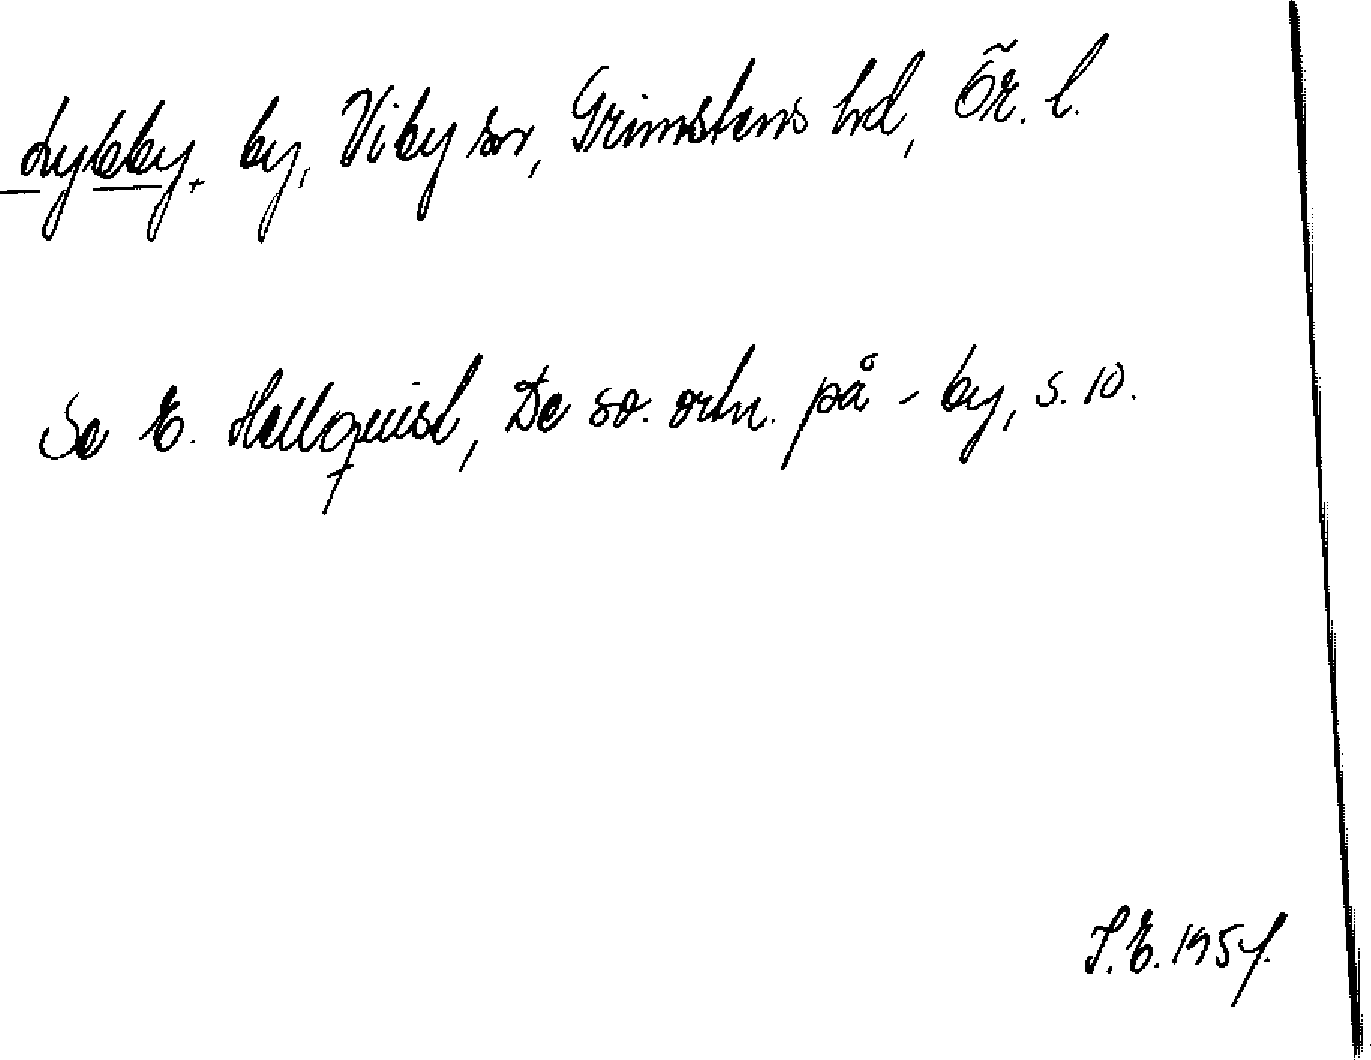 Lybby, by, Viby sn, Grimstens hd, Ör. l.
Se E. Hellquist, De sv. ortn. på -by, s. 10.
S.E. 1957.